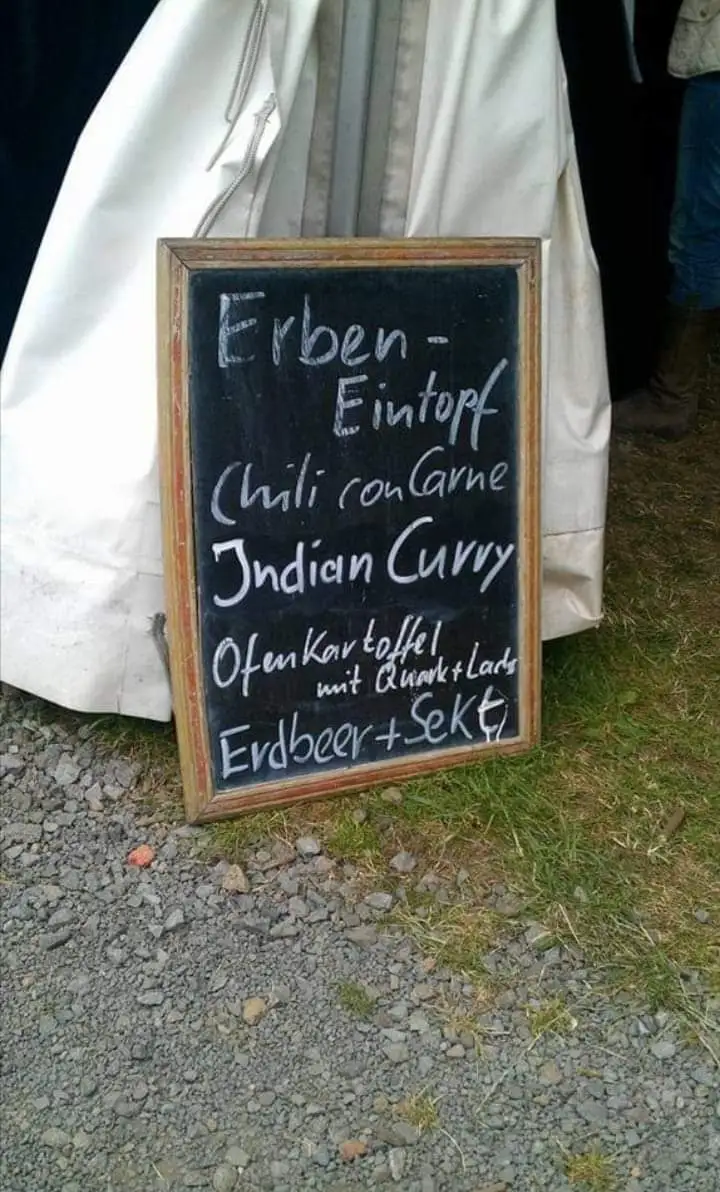 Erben-
Eintopf
Chili con Carne
Indian Curry
Ofenkartoffel
mit Quark + Lachs
Erdbeer + Sekt